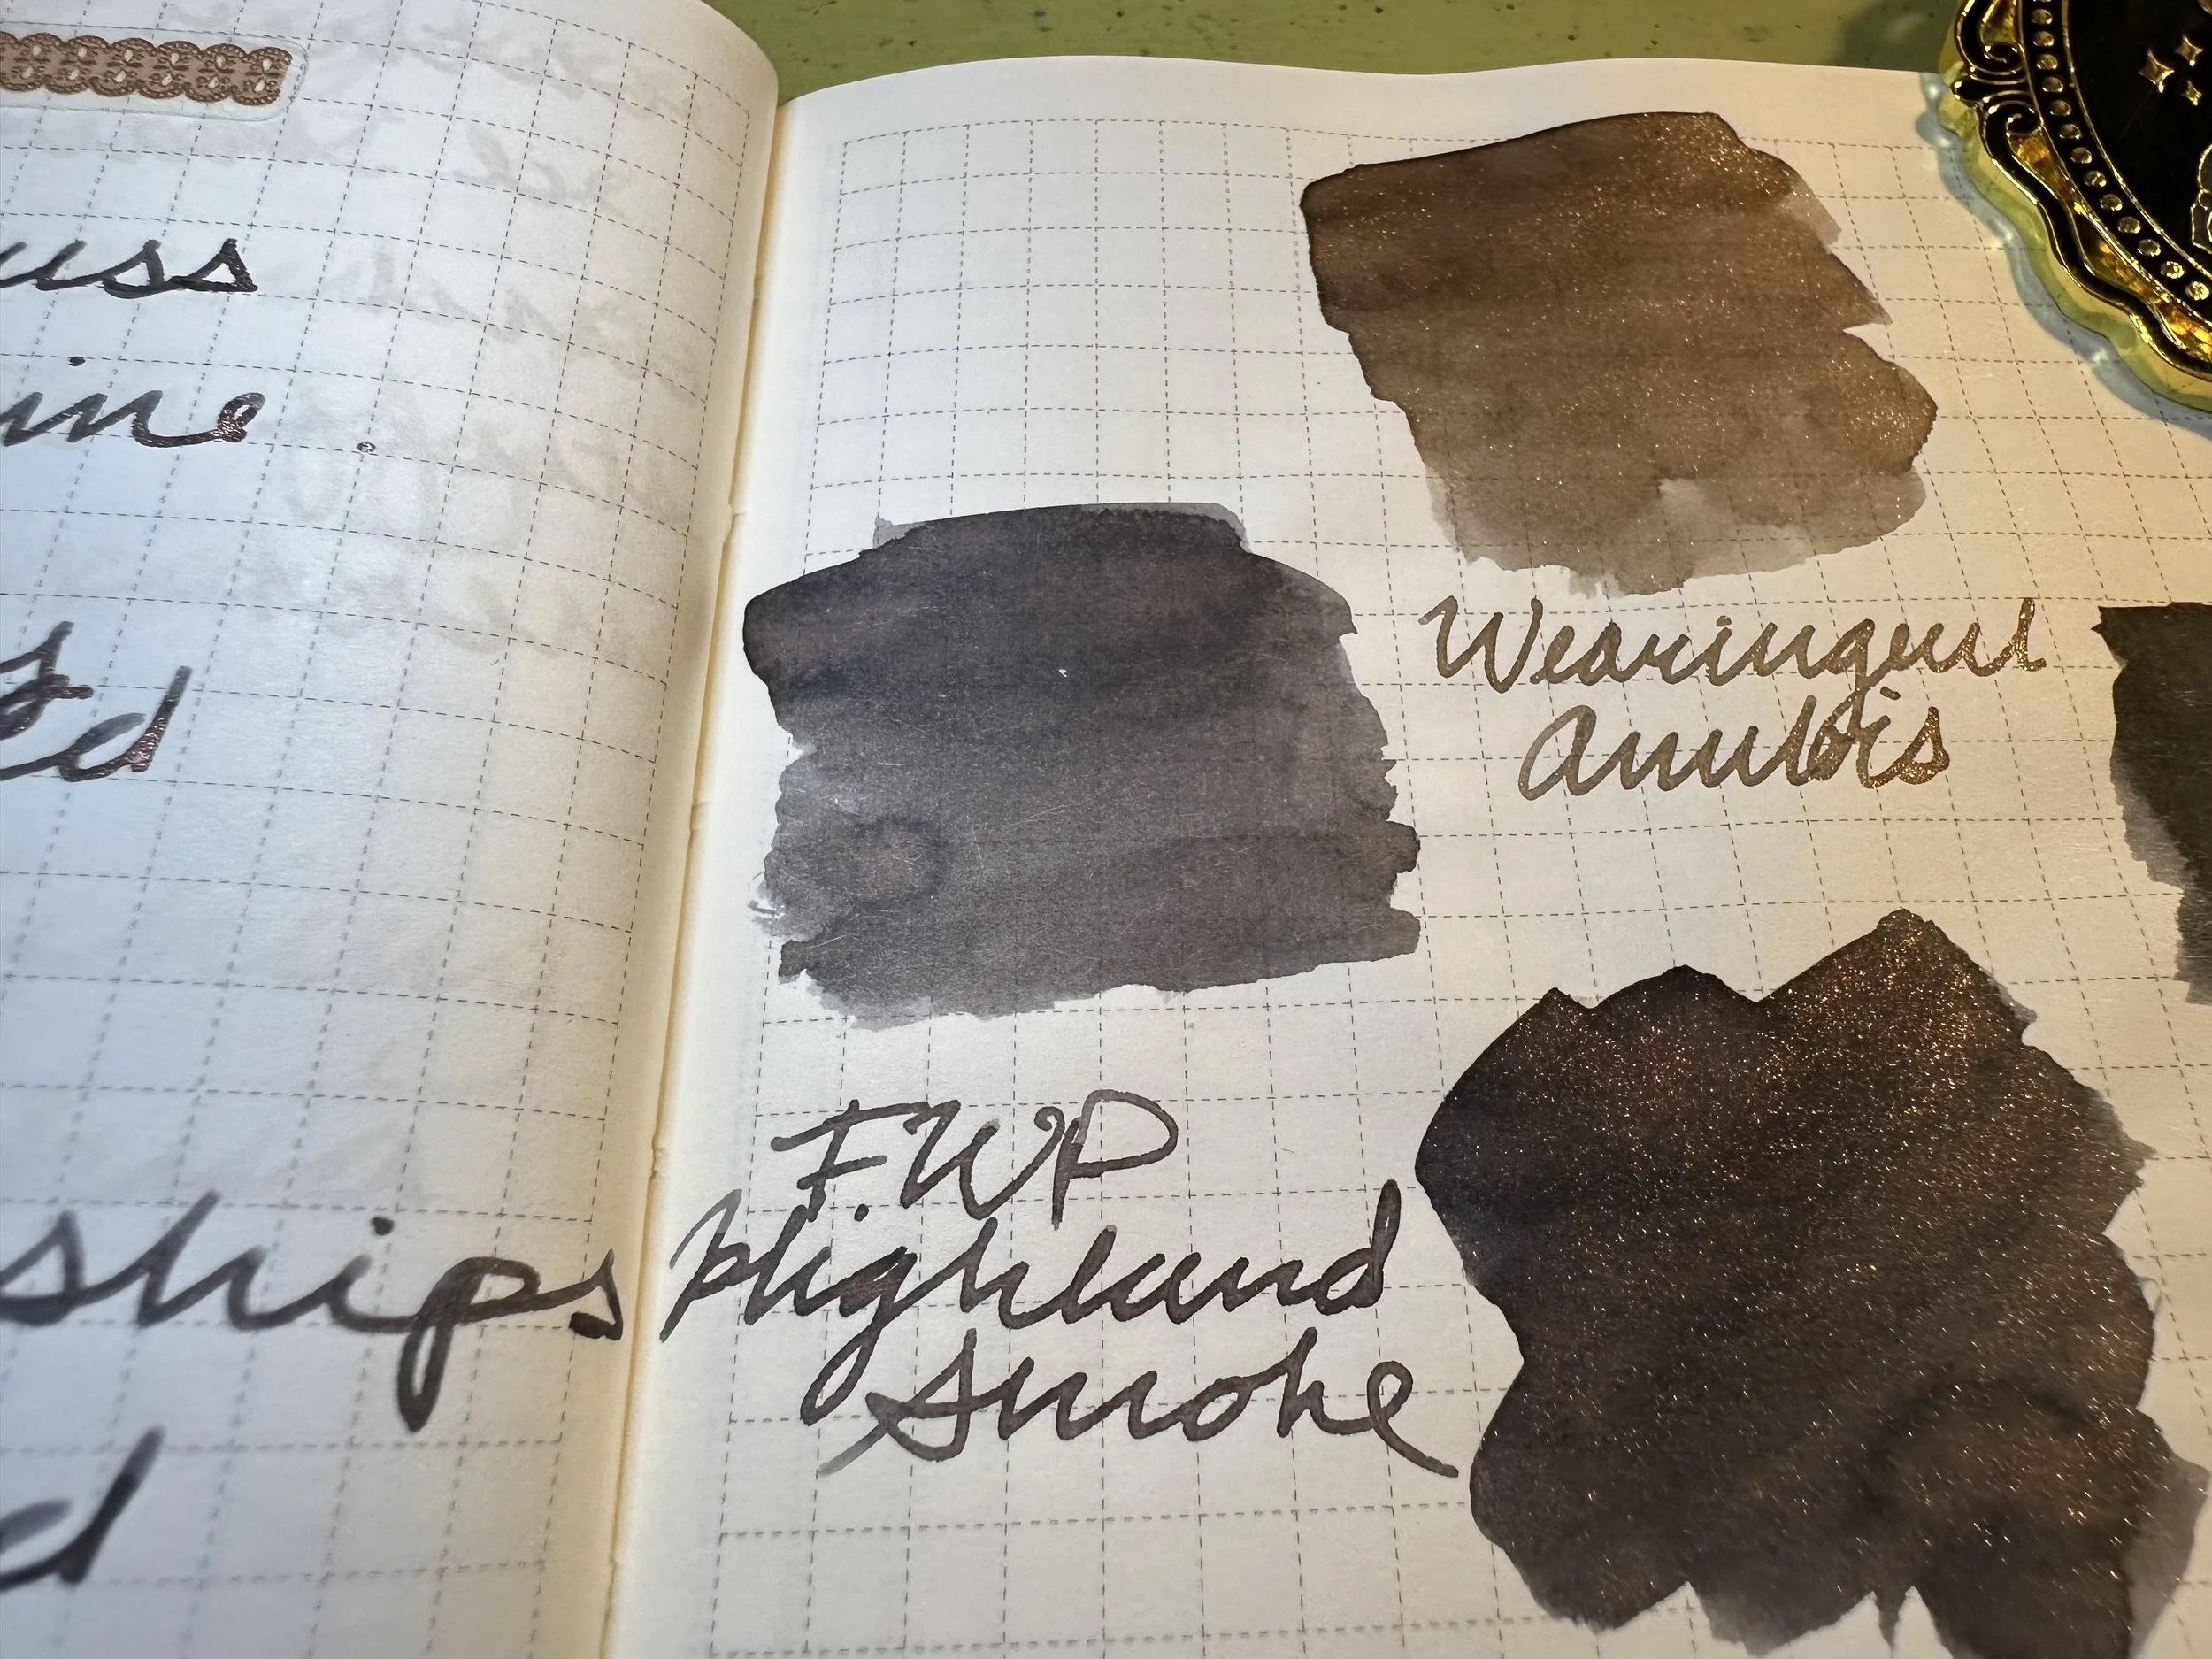 uss
ine.
s
ed
ships
d
Wearingeul
Anubis
FWP
Highland
Smoke